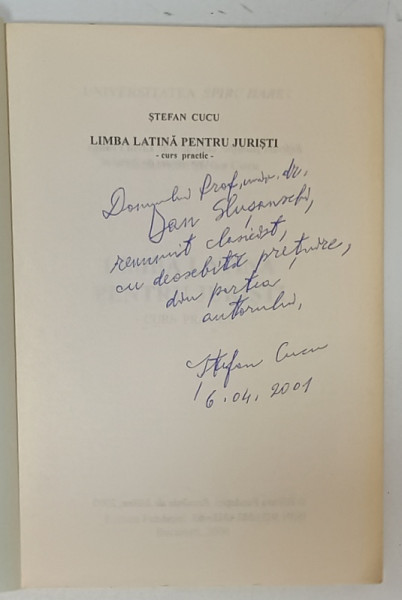 ȘTEFAN CUCU
LIMBA LATINĂ PENTRU JURIȘTI
- curs practic -
Domnului Prof. univ. dr.
Dan Slușanschi,
renumit clasicist,
cu deosebită prețuire,
din partea
autorului,
Ștefan Cucu
6.04.2001